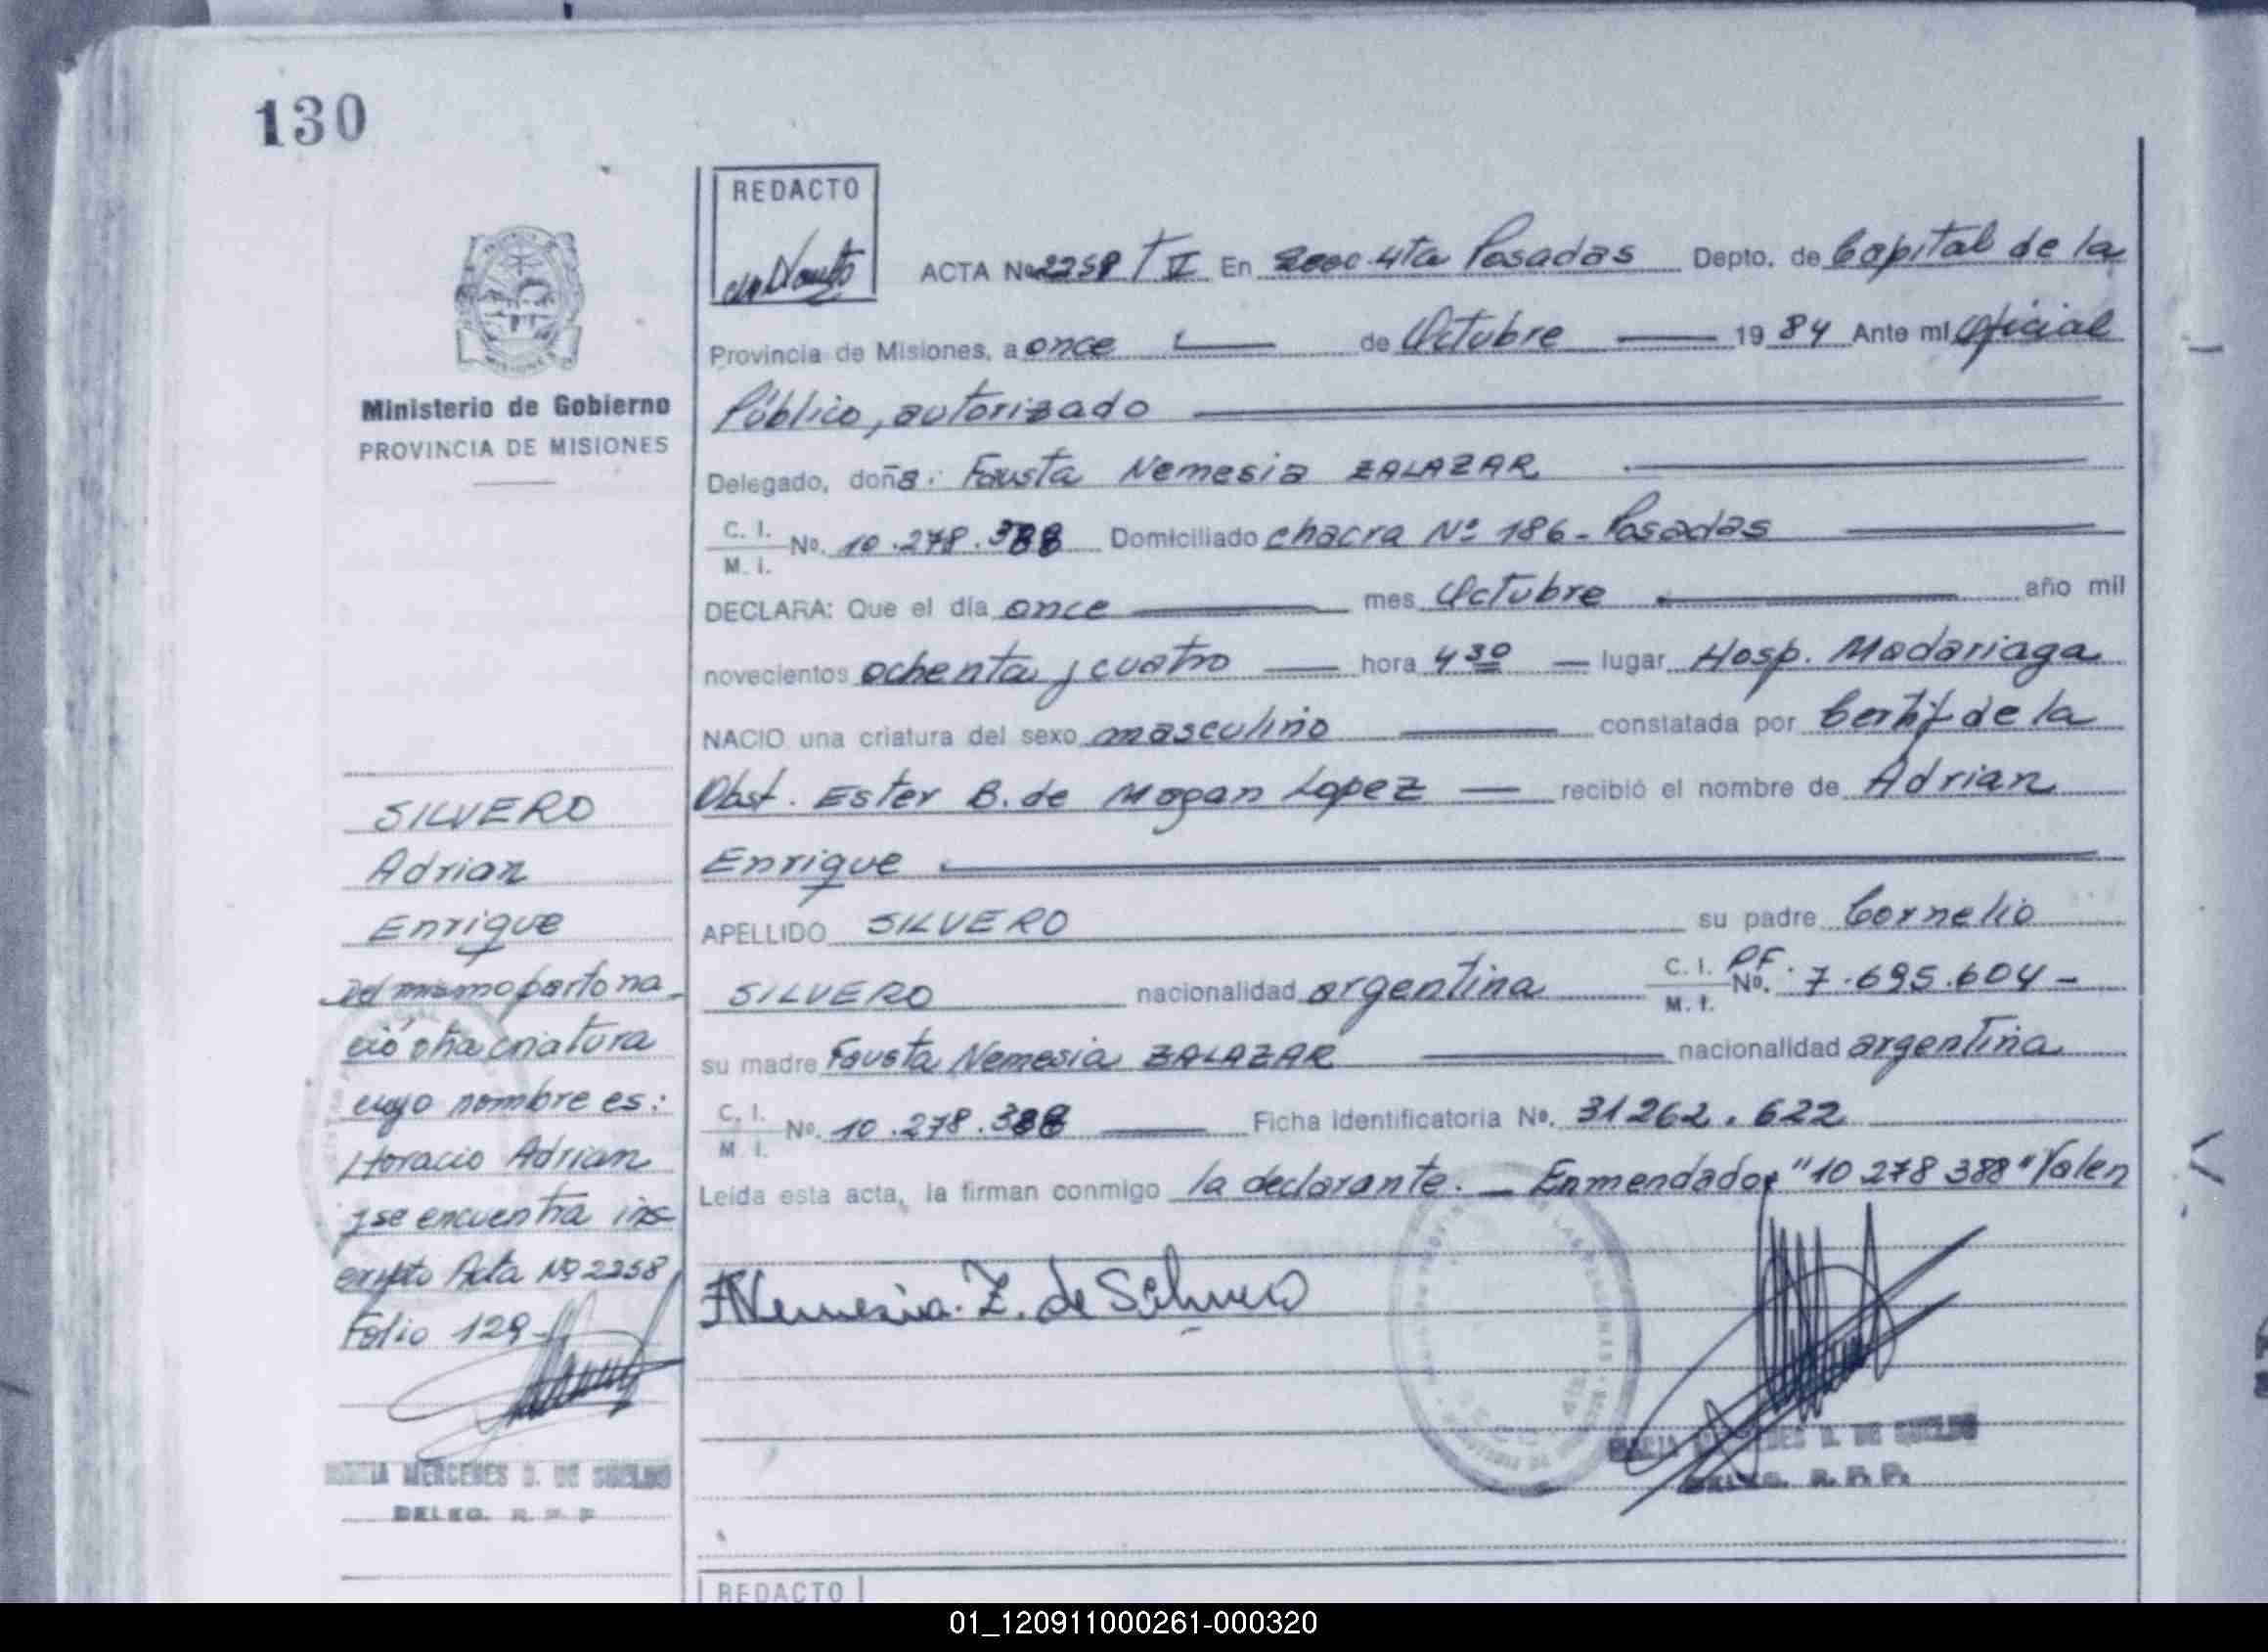 130
REDACTO
ACTA No 2259 T II En Secc. 4ta Posadas Depto. de Capital de la
Provincia de Misiones, a once de Octubre 19 84 Ante mi Oficial
Público, autorizado
Ministerio de Gobierno
PROVINCIA DE MISIONES
Delegado, doña: Fausta Nemesia ZALAZAR
C. I.
M. I. No. 10.278.388 Domiciliado chacra Nº 186 - Posadas
DECLARA: Que el día once mes Octubre año mil
novecientos ochenta y cuatro hora 4 30 lugar Hosp. Madariaga
NACIO una criatura del sexo masculino constatada por Certif de la
Obst. Ester B. de Mogan Lopez recibió el nombre de Adrian
Enrique
APELLIDO SILVERO su padre Cornelio
SILVERO nacionalidad argentina C. I. PF.
M. I. No. 7.695.604 -
su madre Fausta Nemesia ZALAZAR nacionalidad argentina
C. I.
M. I. No. 10.278.388 Ficha Identificatoria No. 31262.622
Leída esta acta, la firman conmigo la declarante. - Enmendados "10 278 388" Valen
F Nemesia. Z. de Silvero
SILVERO
Adrian
Enrique
Del mismo parto na-
ció otra criatura
cuyo nombre es:
Horacio Adrian
y se encuentra ins-
cripto Acta Nº 2258
Folio 129-
MARIA MERCEDES D. DE SUELDO
DELEG. R. P. P.
MARIA MERCEDES D. DE SUELDO
DELEG. R. P. P.
REDACTO
01_120911000261-000320